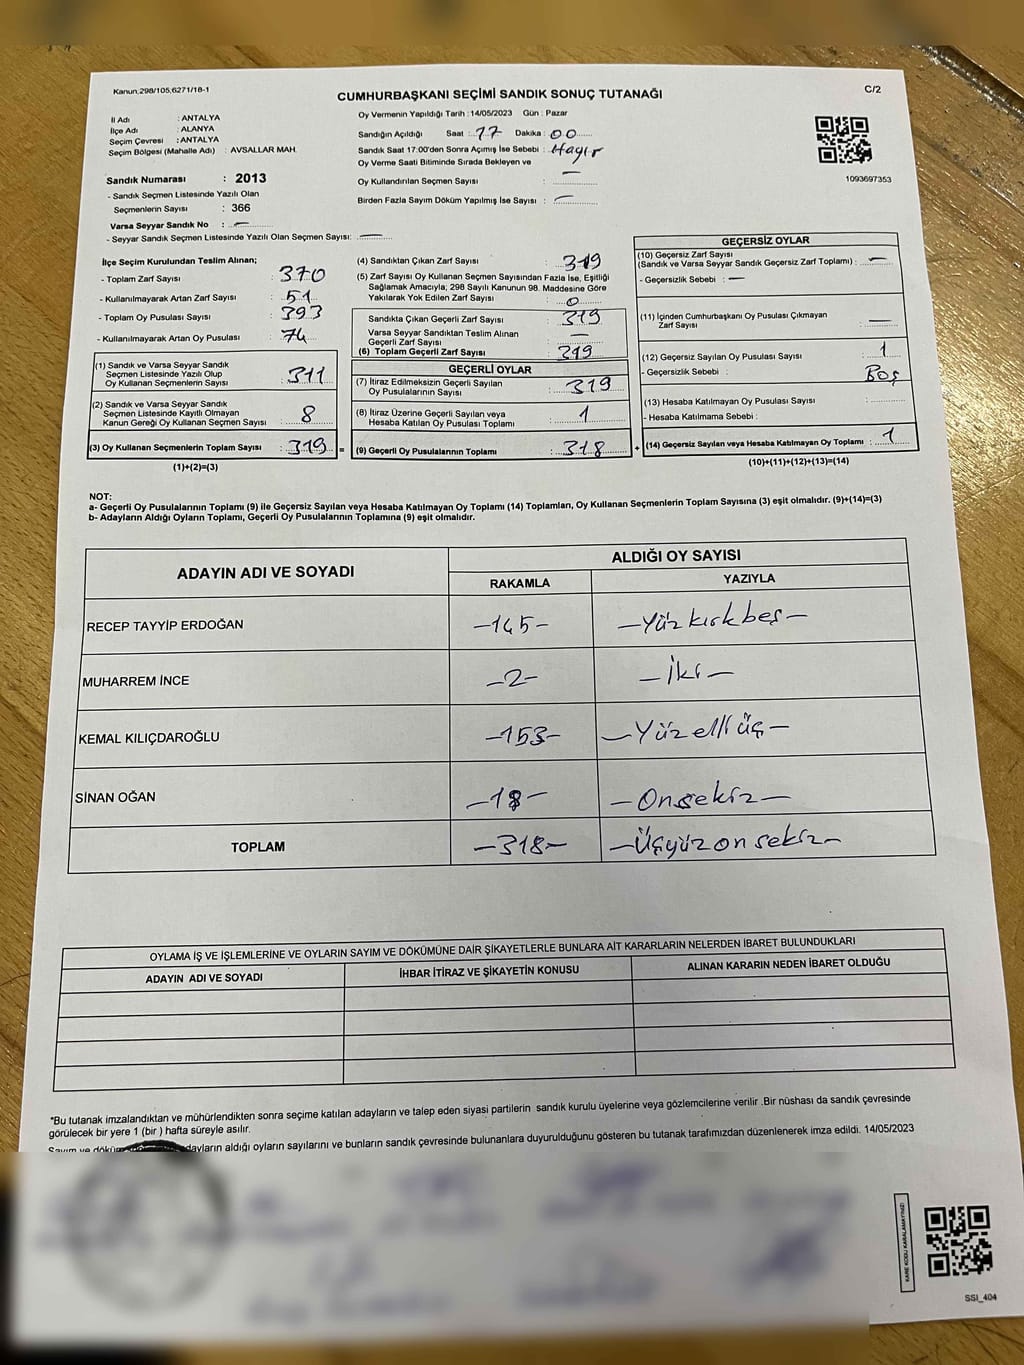 Kanun,298/105,6271/18-1
C/2
CUMHURBAŞKANI SEÇİMİ SANDIK SONUÇ TUTANAĞI
İl Adı : ANTALYA
İlçe Adı : ALANYA
Seçim Çevresi : ANTALYA
Seçim Bölgesi (Mahalle Adı) : AVSALLAR MAH.
Sandık Numarası : 2013
- Sandık Seçmen Listesinde Yazılı Olan
Seçmenlerin Sayısı : 366
Varsa Seyyar Sandık No : —
- Seyyar Sandık Seçmen Listesinde Yazılı Olan Seçmen Sayısı: —
Oy Vermenin Yapıldığı Tarih : 14/05/2023 Gün : Pazar
Sandığın Açıldığı Saat : 17 Dakika : 00
Sandık Saat 17:00'den Sonra Açımış İse Sebebi : Hayır
Oy Verme Saati Bitiminde Sırada Bekleyen ve
Oy Kullandırılan Seçmen Sayısı : —
Birden Fazla Sayım Döküm Yapılmış İse Sayısı : —
1093697353
İlçe Seçim Kurulundan Teslim Alınan;
- Toplam Zarf Sayısı : 370
- Kullanılmayarak Artan Zarf Sayısı : 51
- Toplam Oy Pusulası Sayısı : 393
- Kullanılmayarak Artan Oy Pusulası : 74
(1) Sandık ve Varsa Seyyar Sandık
Seçmen Listesinde Yazılı Olup
Oy Kullanan Seçmenlerin Sayısı : 311
(2) Sandık ve Varsa Seyyar Sandık
Seçmen Listesinde Kayıtlı Olmayan
Kanun Gereği Oy Kullanan Seçmen Sayısı : 8
(3) Oy Kullanan Seçmenlerin Toplam Sayısı : 319 =
(1)+(2)=(3)
(4) Sandıktan Çıkan Zarf Sayısı : 319
(5) Zarf Sayısı Oy Kullanan Seçmen Sayısından Fazla İse, Eşitliği
Sağlamak Amacıyla; 298 Sayılı Kanunun 98. Maddesine Göre
Yakılarak Yok Edilen Zarf Sayısı : 0
Sandıkta Çıkan Geçerli Zarf Sayısı : 319
Varsa Seyyar Sandıktan Teslim Alınan
Geçerli Zarf Sayısı : —
(6) Toplam Geçerli Zarf Sayısı : 319
GEÇERLİ OYLAR
(7) İtiraz Edilmeksizin Geçerli Sayılan
Oy Pusulalarının Sayısı : 319
(8) İtiraz Üzerine Geçerli Sayılan veya
Hesaba Katılan Oy Pusulası Toplamı : 1
(9) Geçerli Oy Pusulalarının Toplamı : 318 +
GEÇERSİZ OYLAR
(10) Geçersiz Zarf Sayısı
(Sandık ve Varsa Seyyar Sandık Geçersiz Zarf Toplamı) : —
- Geçersizlik Sebebi : —
(11) İçinden Cumhurbaşkanı Oy Pusulası Çıkmayan
Zarf Sayısı : —
(12) Geçersiz Sayılan Oy Pusulası Sayısı : 1
- Geçersizlik Sebebi : Boş
(13) Hesaba Katılmayan Oy Pusulası Sayısı :
- Hesaba Katılmama Sebebi :
(14) Geçersiz Sayılan veya Hesaba Katılmayan Oy Toplamı : 1
(10)+(11)+(12)+(13)=(14)
NOT:
a- Geçerli Oy Pusulalarının Toplamı (9) ile Geçersiz Sayılan veya Hesaba Katılmayan Oy Toplamı (14) Toplamları, Oy Kullanan Seçmenlerin Toplam Sayısına (3) eşit olmalıdır. (9)+(14)=(3)
b- Adayların Aldığı Oyların Toplamı, Geçerli Oy Pusulalarının Toplamına (9) eşit olmalıdır.
ADAYIN ADI VE SOYADI
ALDIĞI OY SAYISI
RAKAMLA YAZIYLA
RECEP TAYYİP ERDOĞAN -145- -Yüz kırk beş-
MUHARREM İNCE -2- -İki-
KEMAL KILIÇDAROĞLU -153- -Yüz elli üç-
SİNAN OĞAN -18- -Onsekiz-
TOPLAM -318- -Üçyüz on sekiz-
OYLAMA İŞ VE İŞLEMLERİNE VE OYLARIN SAYIM VE DÖKÜMÜNE DAİR ŞİKAYETLERLE BUNLARA AİT KARARLARIN NELERDEN İBARET BULUNDUKLARI
ADAYIN ADI VE SOYADI İHBAR İTİRAZ VE ŞİKAYETİN KONUSU ALINAN KARARIN NEDEN İBARET OLDUĞU
*Bu tutanak imzalandıktan ve mühürlendikten sonra seçime katılan adayların ve talep eden siyasi partilerin sandık kurulu üyelerine veya gözlemcilerine verilir .Bir nüshası da sandık çevresinde
görülecek bir yere 1 (bir ) hafta süreyle asılır.
Sayım ve döküm adayların aldığı oyların sayılarını ve bunların sandık çevresinde bulunanlara duyurulduğunu gösteren bu tutanak tarafımızdan düzenlenerek imza edildi. 14/05/2023
KARE KODU KARALAMAYINIZ!
SSI_404